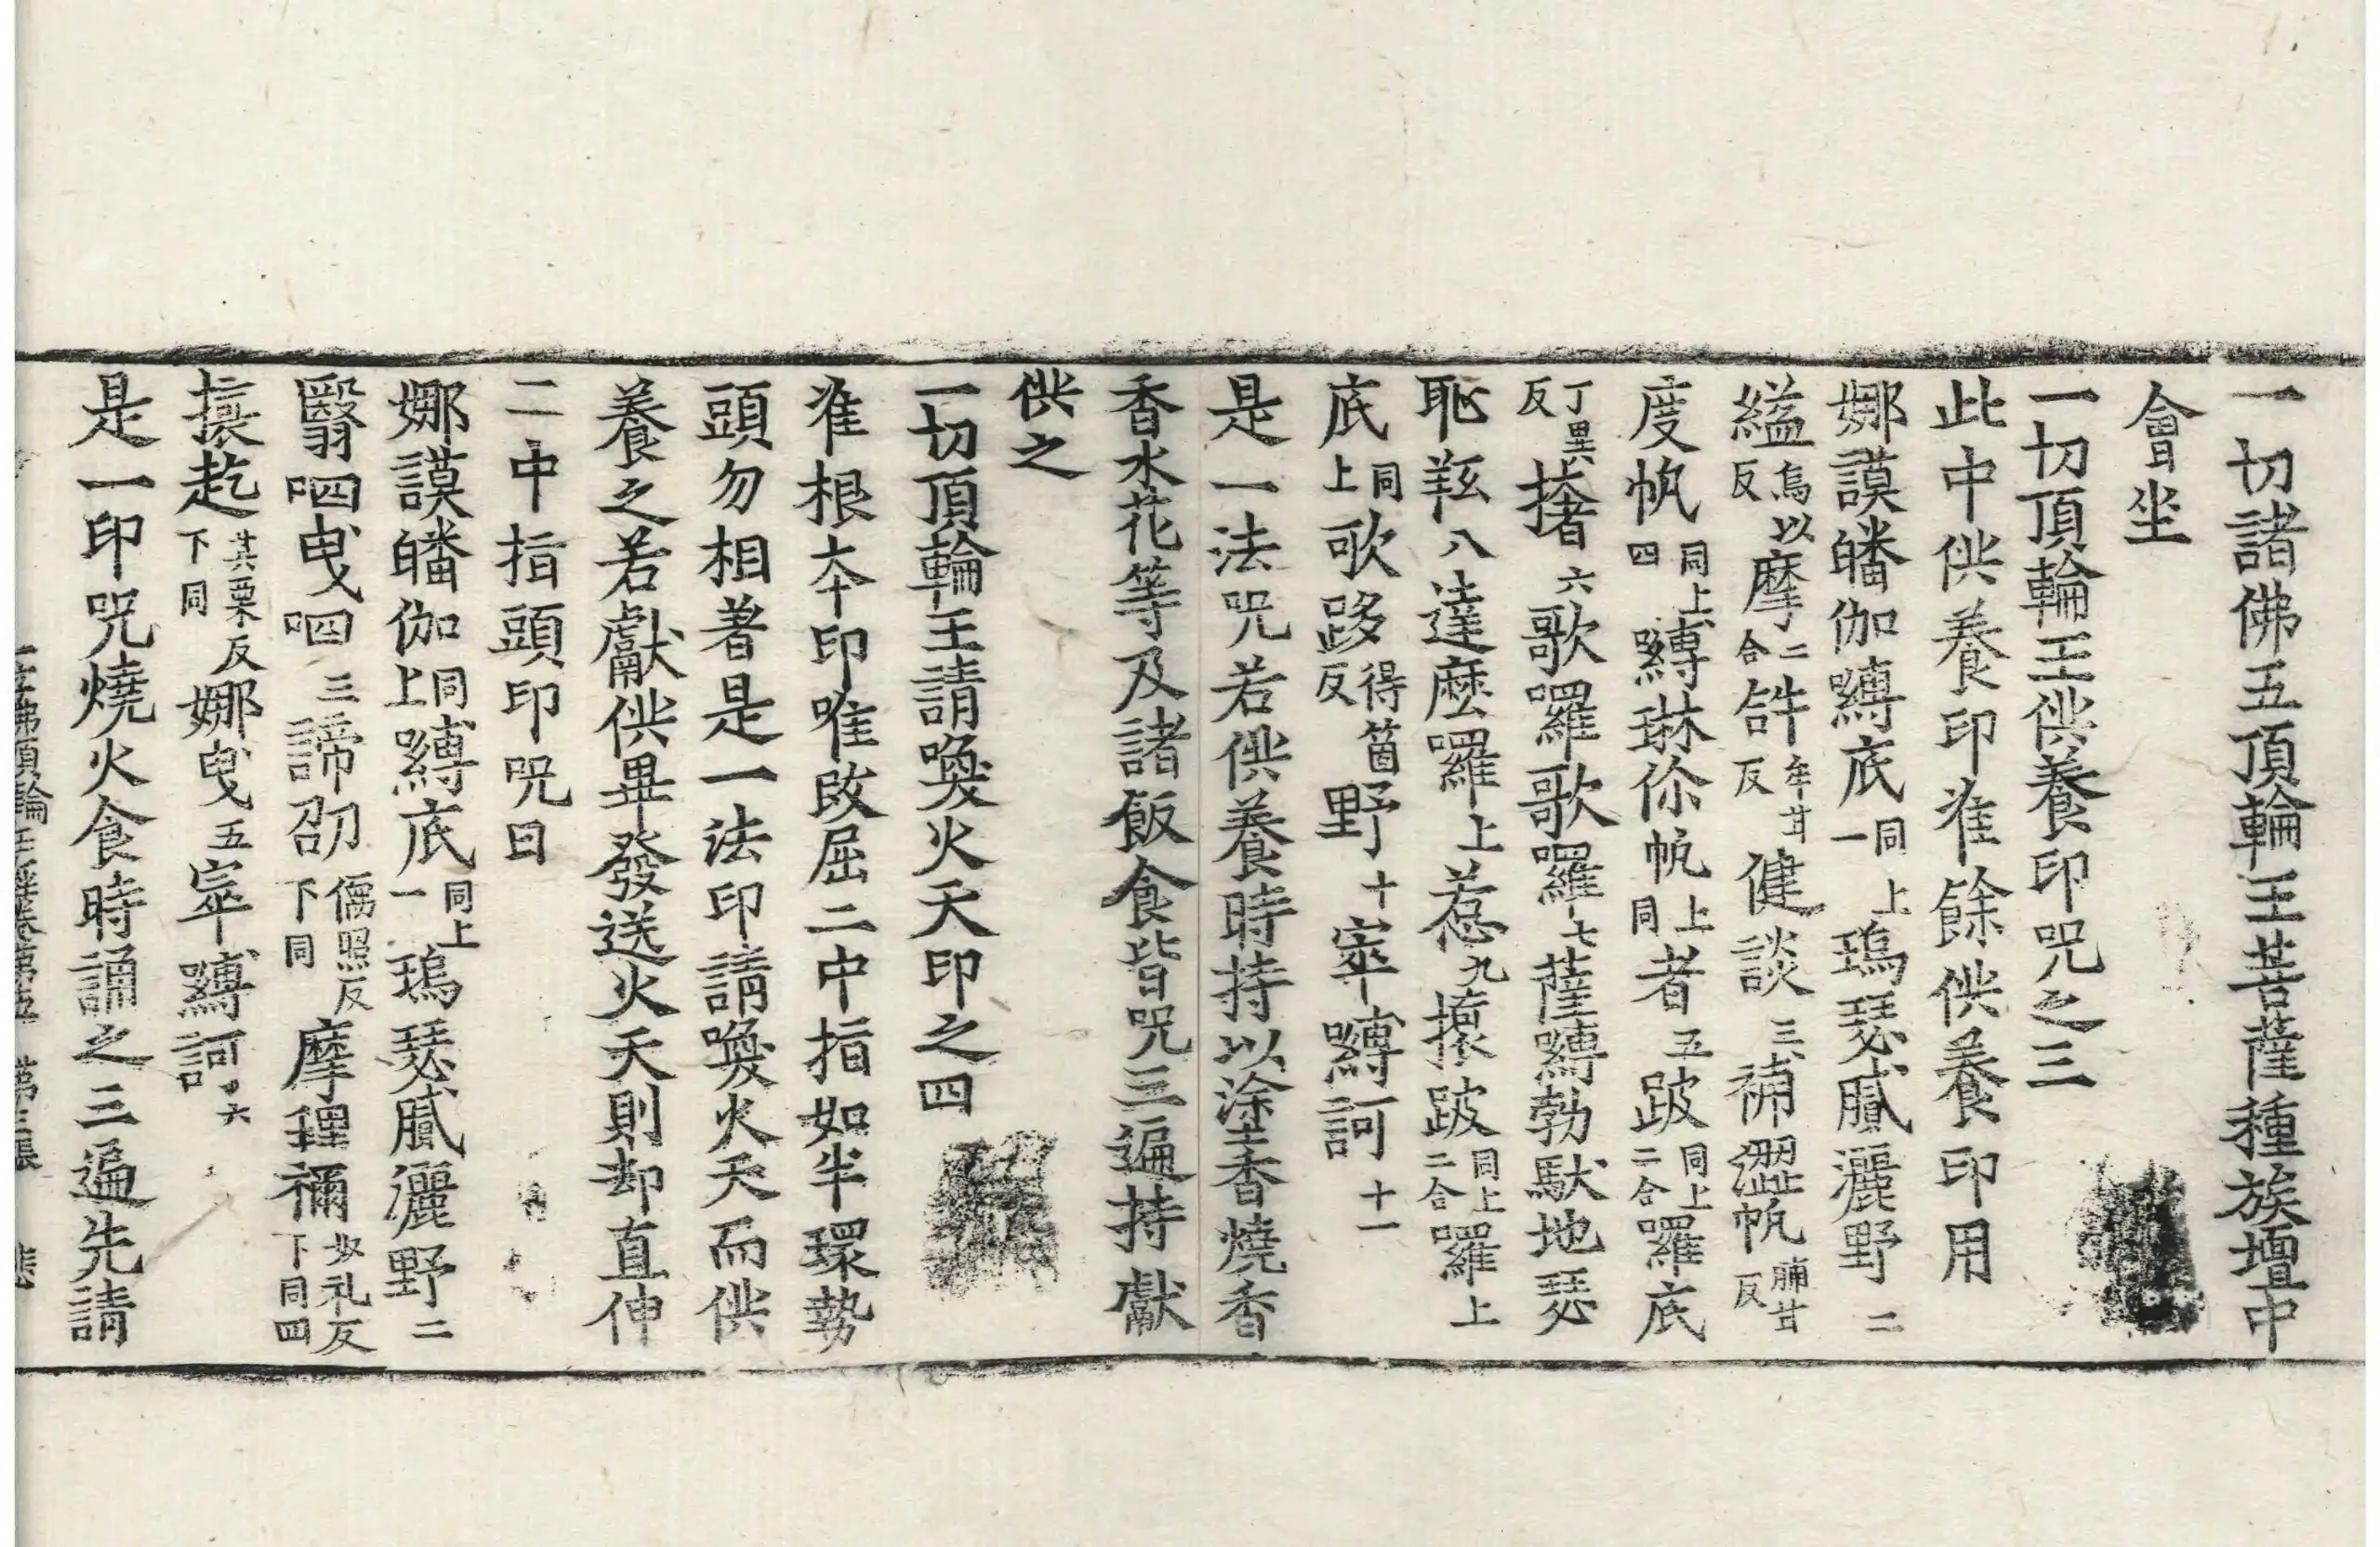 一切諸佛五頂輪王菩薩種族壇中
會坐
一切頂輪王供養印呪之三
此中供養印准餘供養印用
娜謨皤伽嚩底同上一瑦瑟膩灑野二
縊烏以反摩二合𤙖牟甘反健談三補澀帆𫆏甘反
度帆同上四嚩琳㑱帆上同者五跛同上二合囉底
丁異反撦六歌囉歌囉七薩嚩勃馱地瑟
耻䩙八達麼囉上惹九㨖跛同上二合囉上
底同上歌跢得箇反野十窣嚩訶十一
是一法呪若供養時持以塗香燒香
香水花等及諸飯食皆呪三遍持獻
供之
一切頂輪王請喚火天印之四
准根本印唯改屈二中指如半環勢
頭勿相著是一法印請喚火天而供
養之若獻供畢發送火天則却直伸
二中指頭印呪曰
娜謨皤伽上同嚩底同上一瑦瑟膩灑野二
翳呬曳呬三諦𠡠儒照反下同摩䍜禰奴礼反下同四
㨖趂其栗反下同娜曳五窣嚩訶六
是一印呪燒火食時誦之三遍先請